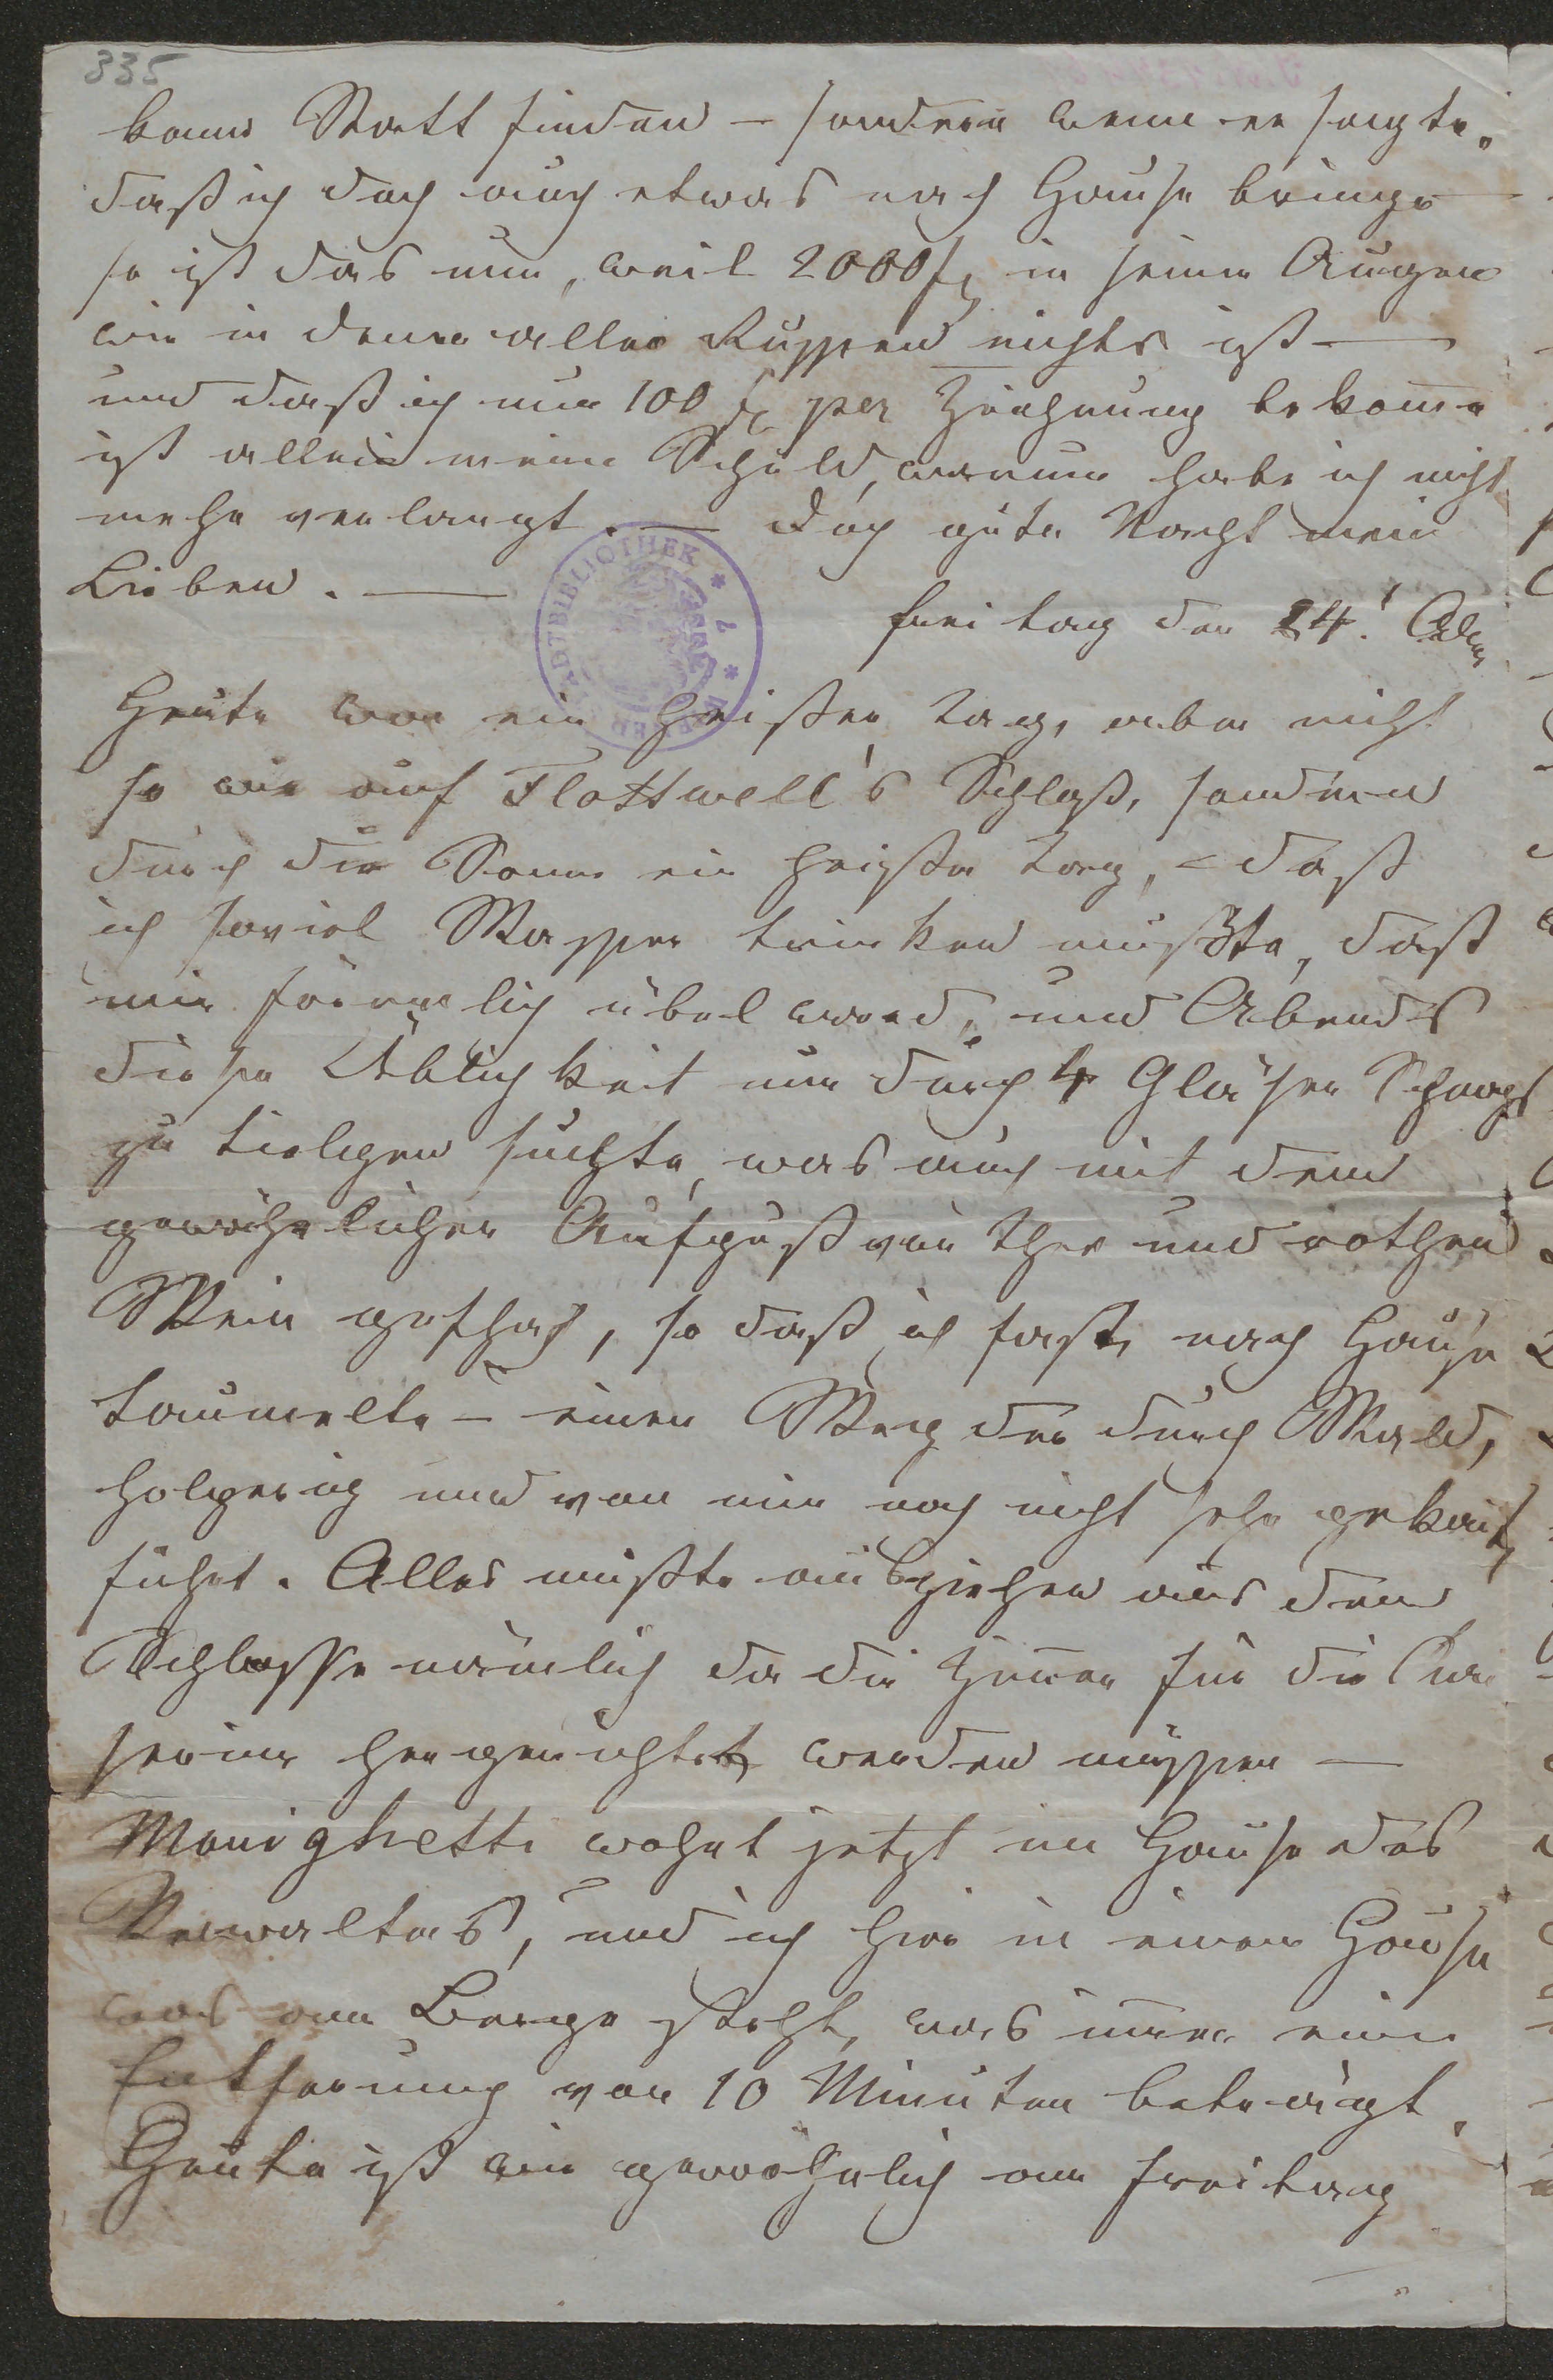 335
kann Statt finden – sondern wenn er sagte,
daß ich doch auch etwas nach Hause bringe –
so ist das nun, weil 2000 f in seinen Augen
wie in denen aller Russen nichts ist –
und daß ich nur 100 f per Zeichnung bekom̅e
ist allein meine Schuld, warum habe ich nicht
mehr verlangt. – Doch gute Nacht mein
Lieben. –
freitag den 24. Abds
Heute war ein heißer Tag, aber nicht
so wie auf Flottwell's Schloß, sondern
durch die Sonne ein heißer Tag, – daß
ich soviel Wasser trinken mußte, daß
mir förmlich übel ward, und Abends
diese Üblichkeit nur durch 4 Gläser Schnaps
zu tielgen suchte, was auch mit dem
gewöhnlichen Aufguß von Thee und rothen
Wein geschah, so daß ich fast nach Hause
taumelte – einen Weg der durch Wald,
holperig und von mir noch nicht sehr gekan̅t,
führt. Alles mußte ausziehen aus dem
Schlosse nämlich da die Zim̅er für die
hergerichtet werden müssen –
Monighetti wohnt jetzt im Hause des
Verwalters, und ich hier in einem Hause
was am Berge steht, was im̅er eine
Entfernung von 10 Minuten beträgt.
Heute ist wie gewöhnlich am freitag
STADTBIBLIOTHEK